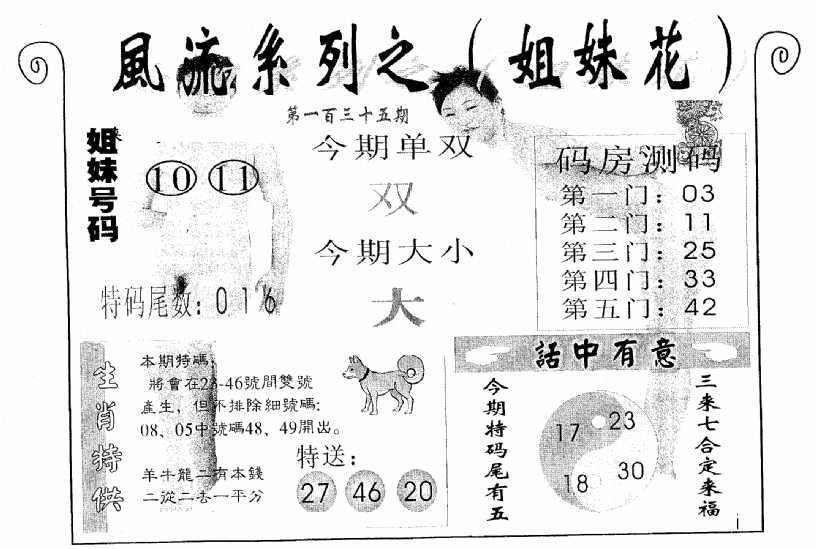 風流系列之（姐妹花）
第一百三十五期
姐妹号码
10 11
今期单双
双
今期大小
大
特码尾数：016
码房测码
第一门：03
第二门：11
第三门：25
第四门：33
第五门：42
生肖特供
本期特碼；
將會在23-46號間雙號
產生，但不排除細號碼：
08、05中號碼48、49開出。
羊牛龍二有本錢
二從二去一平分
特送：
27 46 20
話中有意
今期特码尾有五
17 23
18 30
三来七合定来福